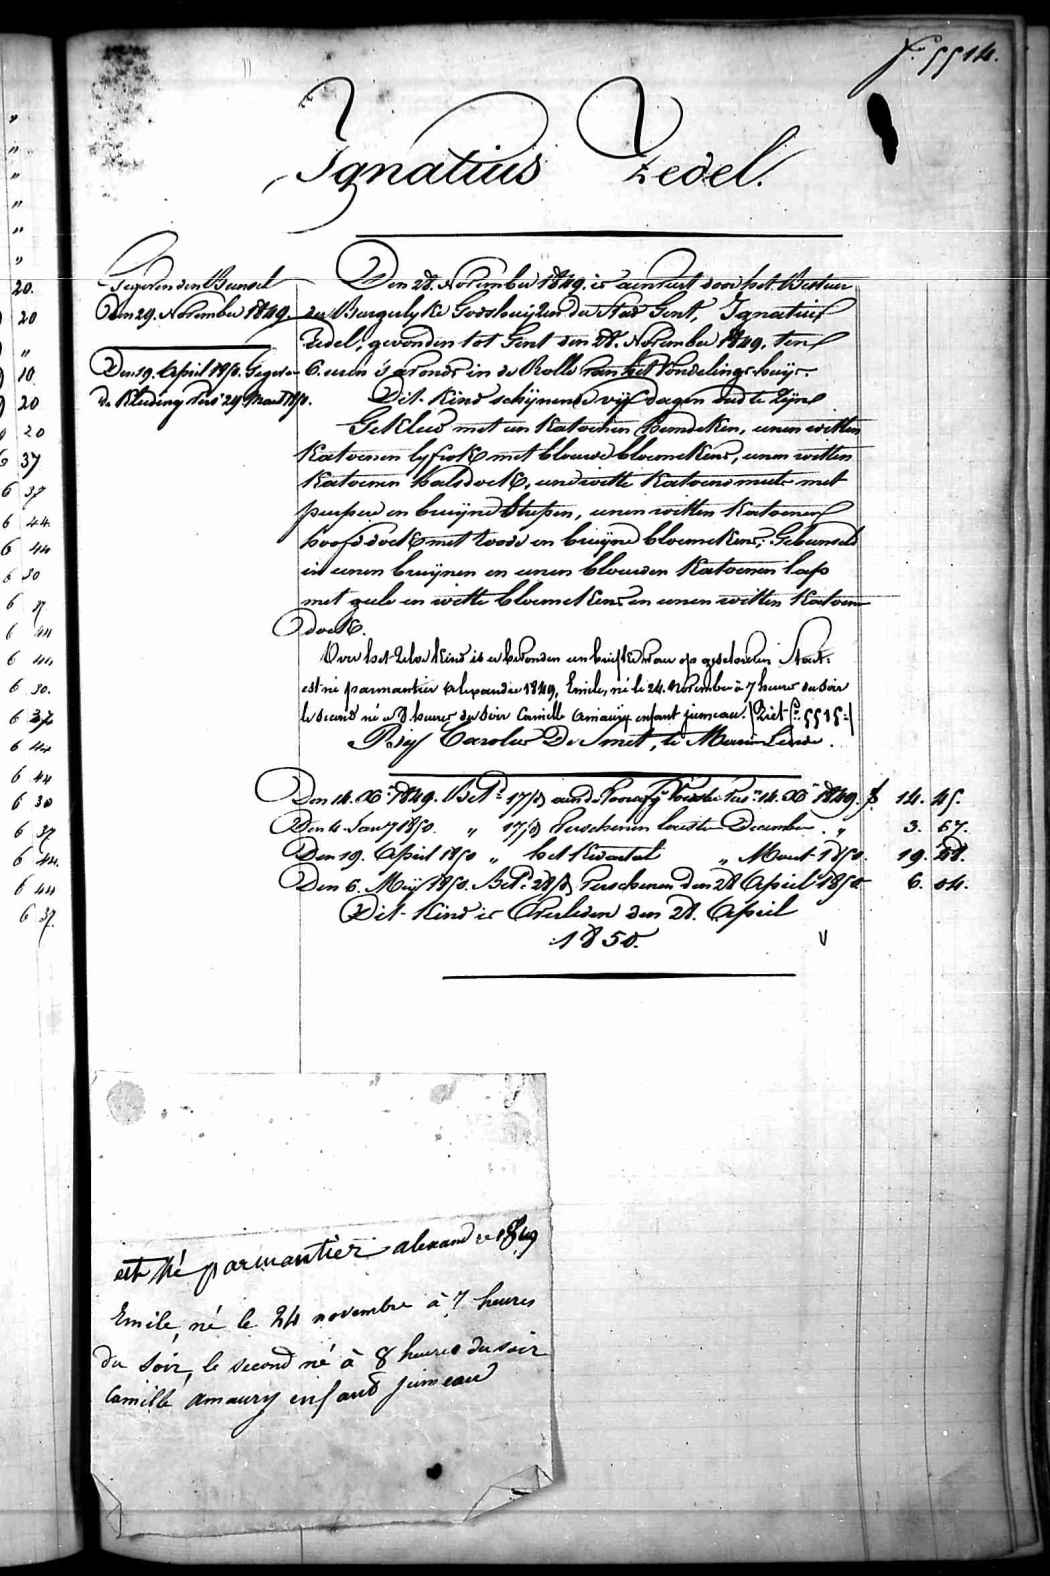 fo. 5514.
Ignatius Zedel.
Gegeven den Bunsel
Den 29. November 1849.
Den 19. April 1850. Gegeven
de Kleding Per 29 Maert 1850.
Den 28. November 1849. is aenveert door het Bestuer
der Burgerlyke Godshuyzen der Stad Gent, Ignatius
Zedel, gevonden tot Gent den 28. November 1849. ten
6. uren 's avonds in de Rolle van het Vondelings-huys.
Dit Kind schijnende vijf dagen oud te Zijn
Gekleed met een Katoenen Hemdeken, eenen witten
Katoenen lyfrok met blauwe bloemekens, eenen witten
Katoenen halsdoek, eene witte Katoene muts met
purpere en bruyne Strepen, eenen witten Katoenen
hoofddoek met roode en bruyne bloemekens, Gebunseld
in eenen bruynen en eenen blauwen Katoenen lap
met geele en witte bloemekens en eenen witten Katoenen
doek.
Over het Zelve kind is er bevonden een briefken waer op geschreven Staet:
est né parmantier alexandre 1849, Emile, né le 24. novembre à 7 heures du Soir
le second né à 8 heures du Soir Camille Amaury enfant jumeau. (Ziet fo. 5515.)
Bij Carolus De Smet, te Meerin Leirde.
Den 14. Xr 1849. Bet. 17/ aen de Voorafg Voeister Per 14. Xr 1849. f. 14. 45.
Den 4. Janry 1850. " 17/ Verschenen leest December. " 3. 57.
Den 19. April 1850 " het Kwartael " Maert 1850. 19. 28.
Den 6. Meij 1850. Bet. 28/ Verschenen den 28 April 1850 6. 04.
Dit Kind is Overleden den 28. April
1850.
est né parmantier alexandre 1849
Emile, né le 24 novembre à 7 heures
du soir, le second né à 8 heures du soir
Camille amaury enfant jumeau
"
"
"
"
"
"
20.
20
"
10
20
20
6 37
6 37
6 44
6 44
6 30
6 37
6 44
6 44
6 30.
6 37
6 44
6 44
6 30
6 37
6 44.
6 44
6 37.